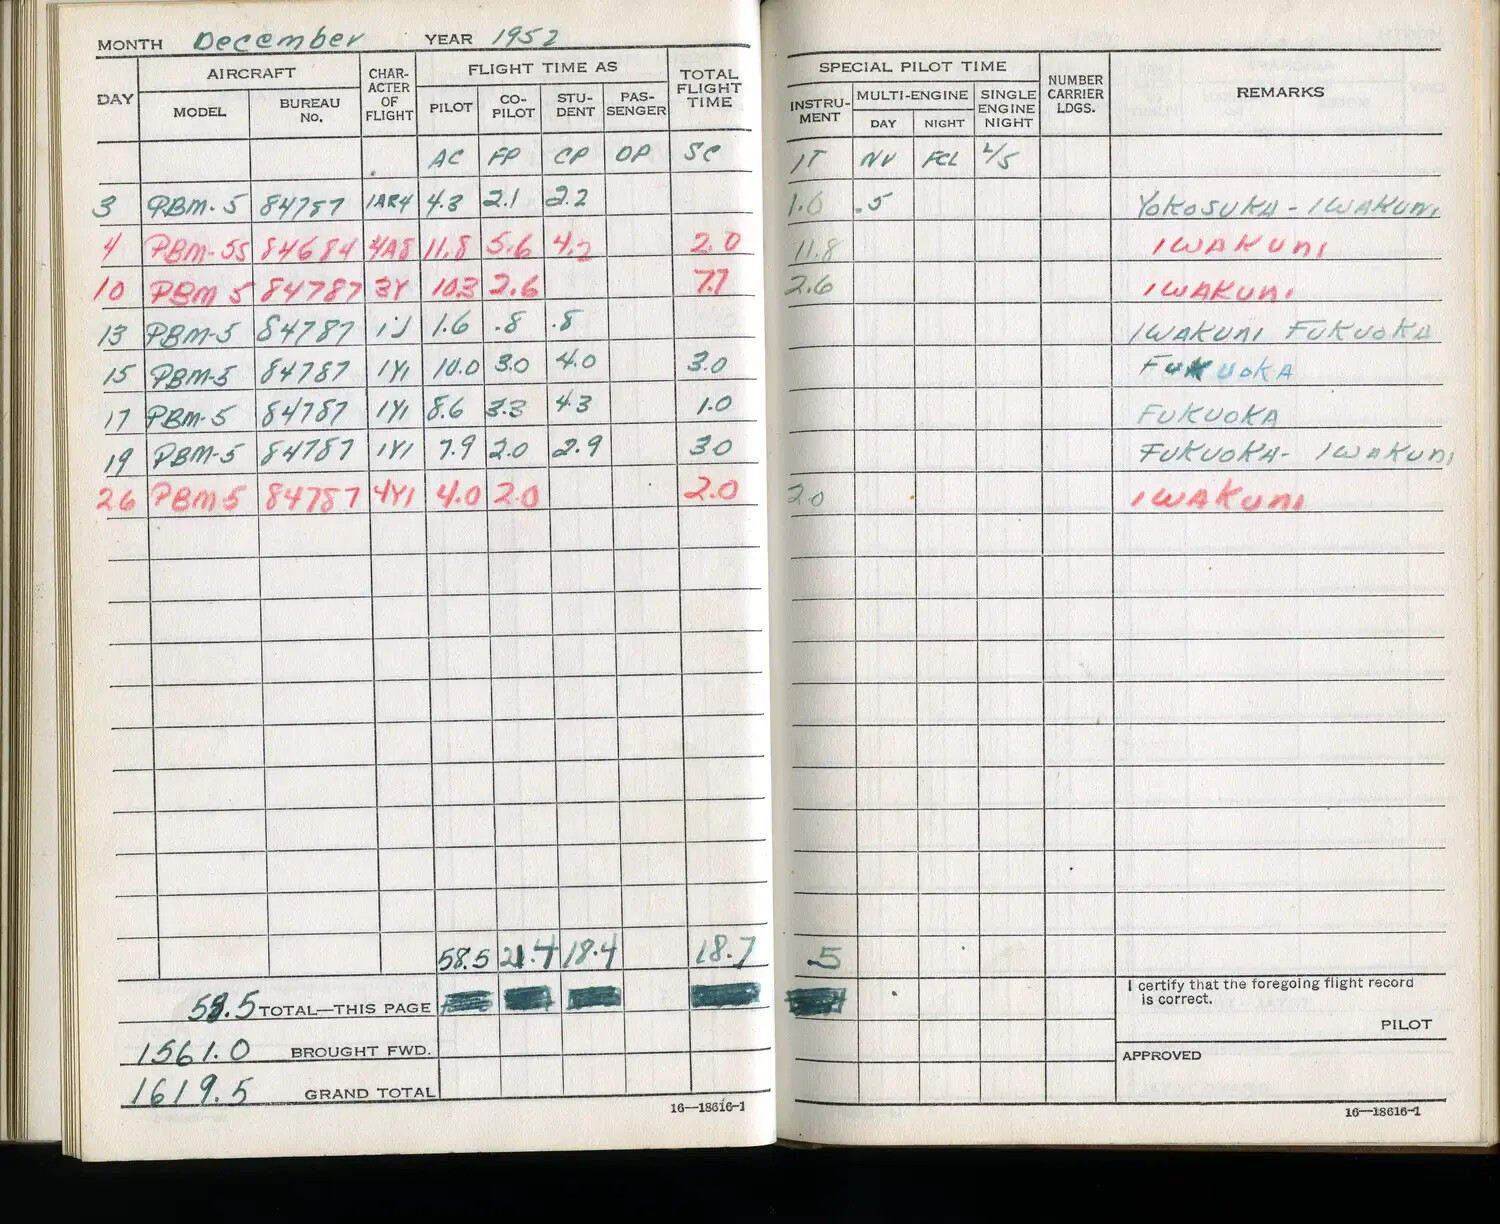 MONTH December YEAR 1952
DAY AIRCRAFT CHAR-ACTER OF FLIGHT FLIGHT TIME AS TOTAL FLIGHT TIME
MODEL BUREAU No. PILOT CO-PILOT STU-DENT PAS-SENGER
AC FP CP OP SC
3 PBM-5 84787 1AR4 4.3 2.1 2.2
4 PBM-5S 84684 4A8 11.8 5.6 4.2 2.0
10 PBM 5 84787 3Y 10.3 2.6 7.7
13 PBM-5 84787 1J 1.6 .8 .8
15 PBM-5 84787 1Y1 10.0 3.0 4.0 3.0
17 PBM-5 84787 1Y1 8.6 3.3 4.3 1.0
19 PBM-5 84787 1Y1 7.9 2.0 2.9 30
26 PBM-5 84787 4Y1 4.0 2.0 2.0
58.5 21.4 18.4 18.7
58.5 TOTAL—THIS PAGE
1561.0 BROUGHT FWD.
1619.5 GRAND TOTAL
16—18616-1
SPECIAL PILOT TIME NUMBER CARRIER LDGS. REMARKS
INSTRU-MENT MULTI-ENGINE SINGLE ENGINE NIGHT
DAY NIGHT
IT NV FCL L/S
1.6 .5 YOKOSUKA - IWAKUNI
11.8 IWAKUNI
2.6 IWAKUNI
IWAKUNI FUKUOKA
FUKUOKA
FUKUOKA
FUKUOKA- IWAKUNI
2.0 IWAKUNI
.5
I certify that the foregoing flight record
is correct.
PILOT
APPROVED
16—18616-1